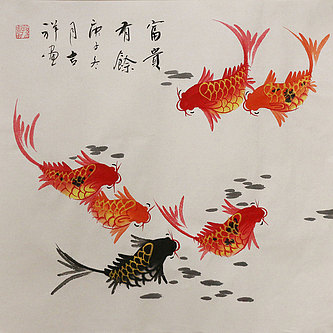 富貴
有餘
庚子冬
月吉
祥画